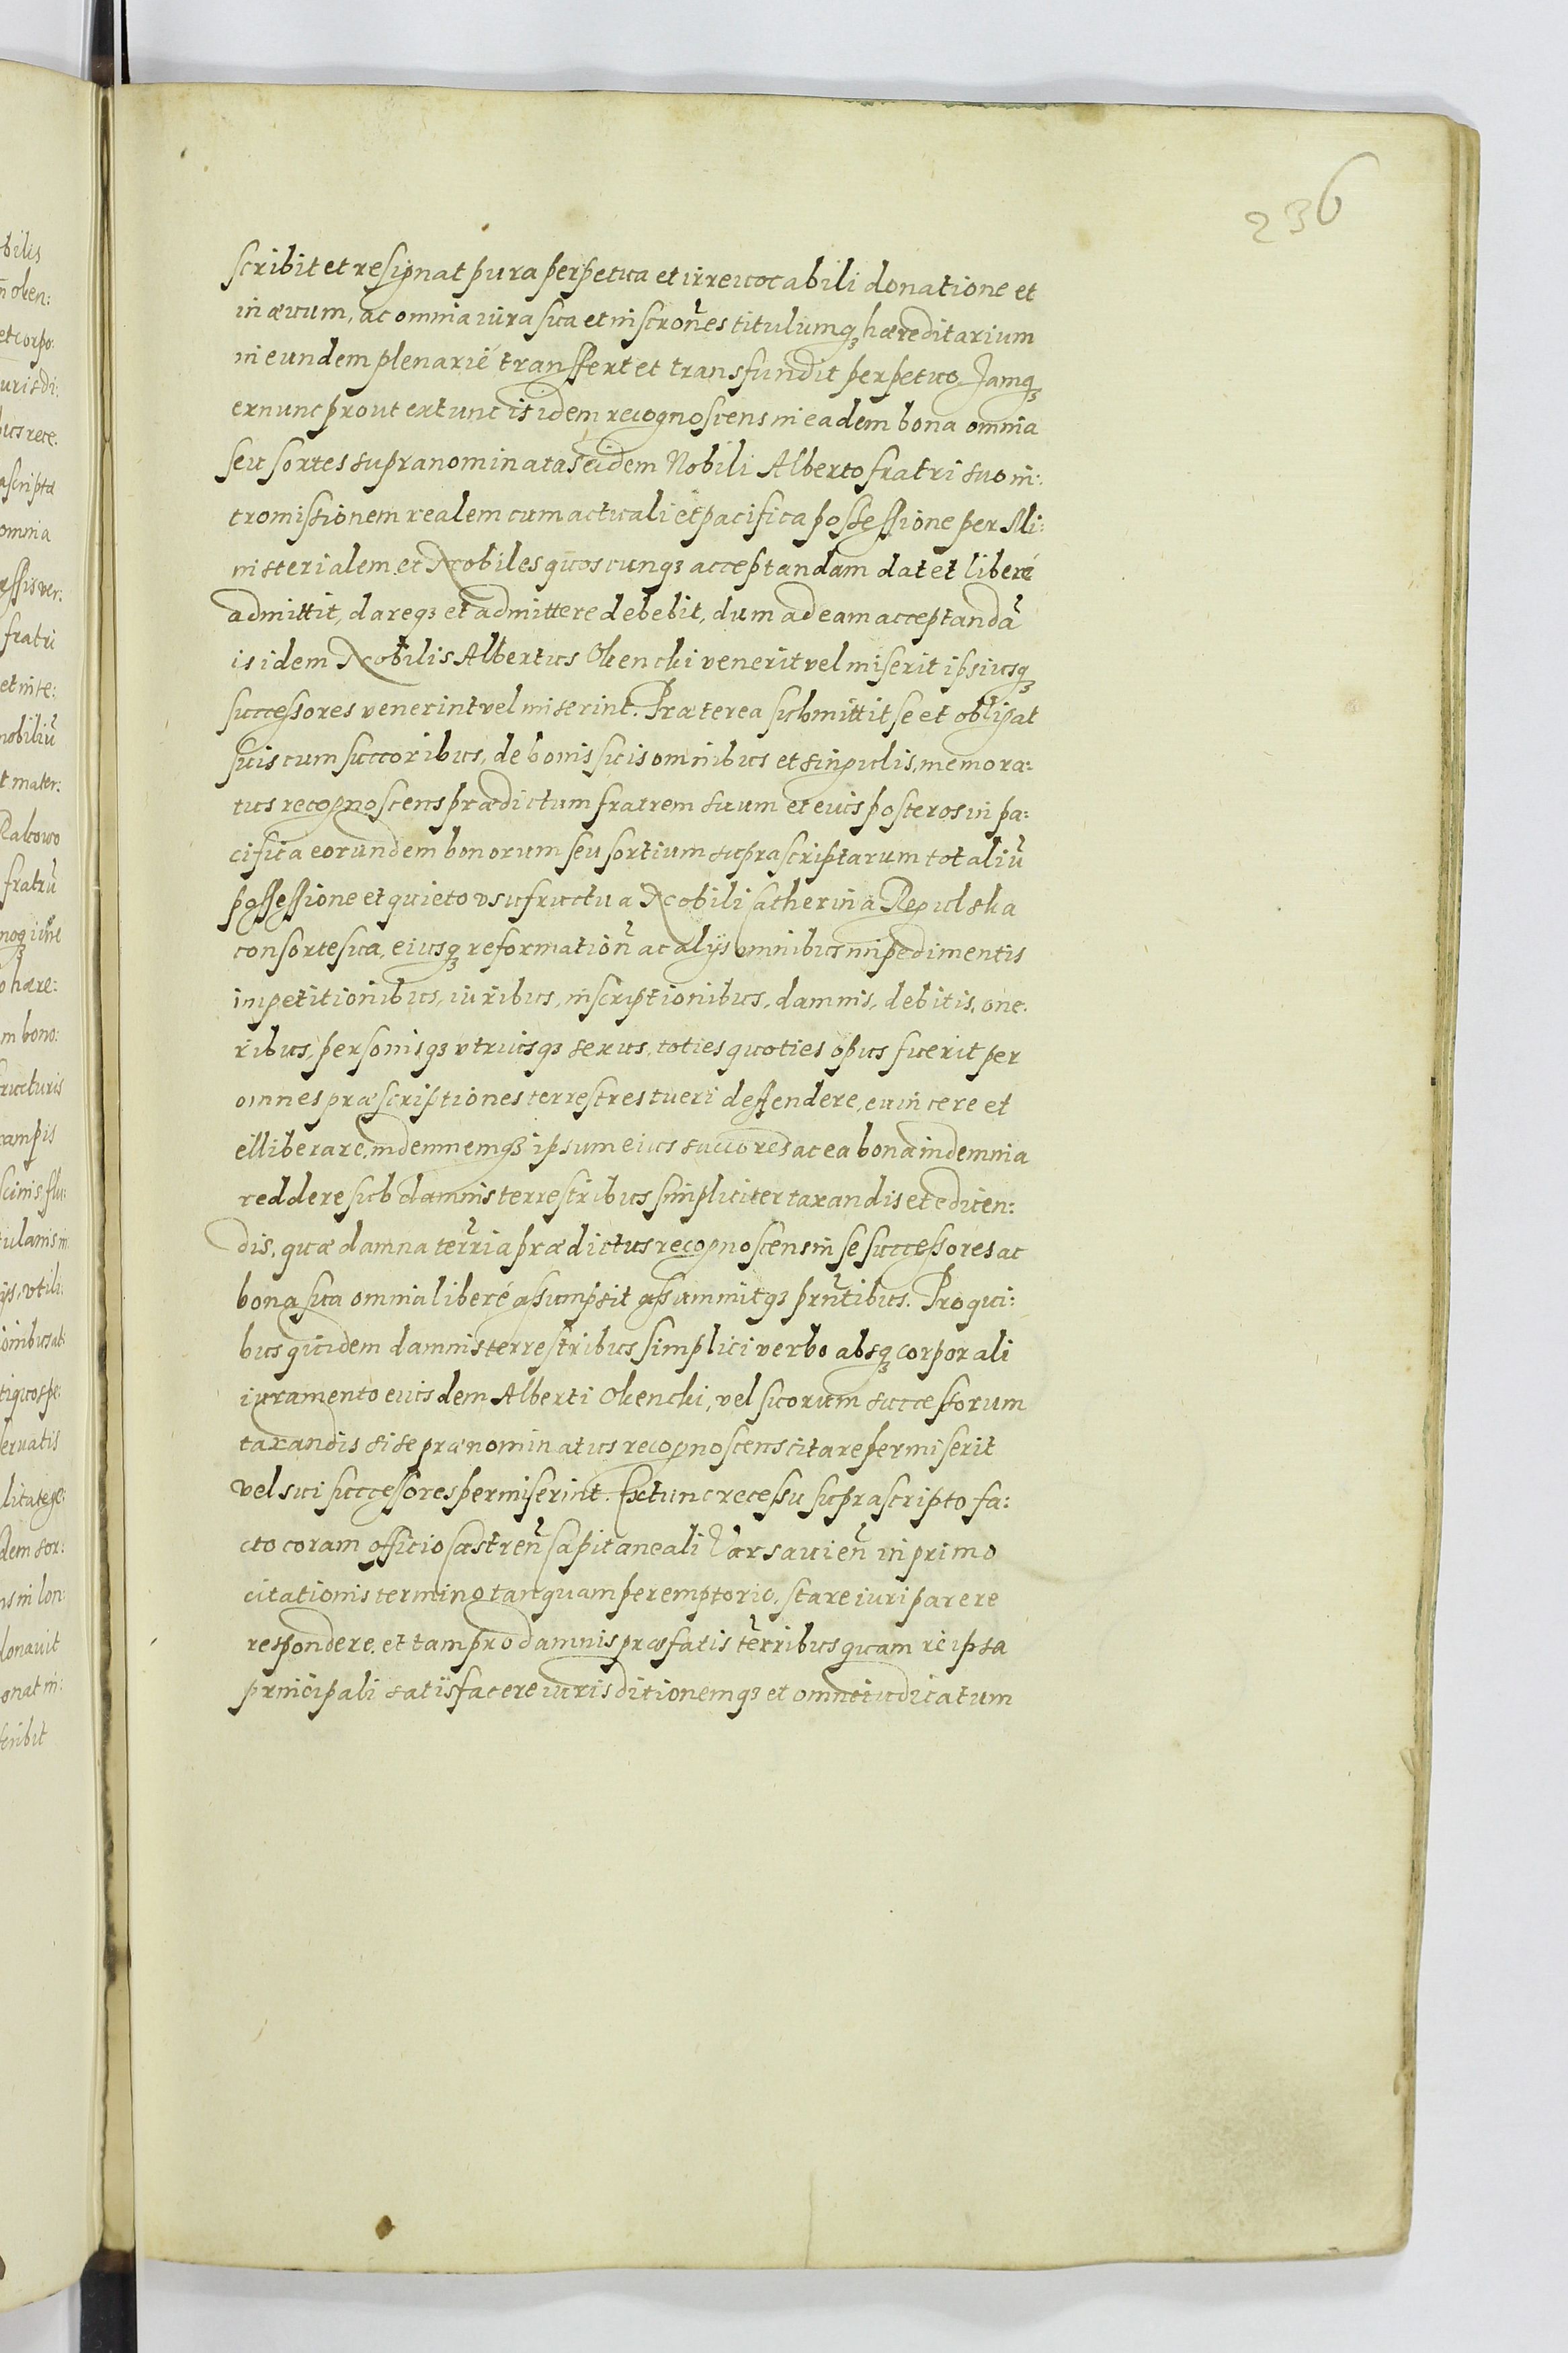 236
scribit et resignat pura perpetua et irreuocabili donatione et
in æuum, ac omnia iura sua et inscrōnes titulumqꝫ hæreditarium
in eundem plenarié transffert et transfundit perpetuo. Jamqꝫ
ex nunc prout ex tunc is idem recognoscens in eadem bona omnia
seu sortes supranominatas eidem Nobili Alberto fratri suo in:
tromissionem realem cum actuali et pacifica possessione per Mi:
nisterialem et Nobiles quoscunqꝫ acceptandam dat et liberé
admittit, dareqꝫ et admittere debebit, dum ad eam acceptandā
is idem Nobilis Albertus Okencki venerit vel miserit ipsiusqꝫ
successores venerint vel miserint. Præterea submittit se et obligat
suis cum succoribus, de bonis suis omnibus et singulis, memora:
tus recognoscens prædictum fratrem suum et eius posteros in pa:
cifica eorundem bonorum seu sortium suprascriptarum totaliū
possessione et quieto vsufructu a Nobili Catherina Regulska
consorte sua, eiusqꝫ reformatioñ ac alijs omnibus impedimentis
impetitionibus, iuribus, inscriptionibus, damnis, debitis, one:
ribus, personisqꝫ vtriusqꝫ sexus, toties quoties opus fuerit per
omnes præscriptiones terrestres tueri deffendere, euincere et
elliberare, indemnemqꝫ ipsum eius succores ac ea bona indemnia
reddere sub damnis terrestribus simpliciter taxandis et edicen:
dis, quæ damna terria prædictus recognoscens in se successores ac
bona sua omnia liberé assumpsit assummitqꝫ prñtibus. Pro qui:
bus quidem damnis terrestribus simplici verbo absqꝫ corporali
iuramento eiusdem Alberti Okencki, vel suorum successorum
taxandis si se prænominatus recognoscens citare permiserit
vel sui successores permiserint. Extunc recessu suprascripto fa:
cto coram officio Castreñ Capitaneali Varsauieñ in primo
citationis termino tanquam peremptorio, stare iuri parere
respondere, et tam pro damnis præfatis terribus quam re ipsa
principali satisfacere iurisditionemqꝫ et omne iudicatum